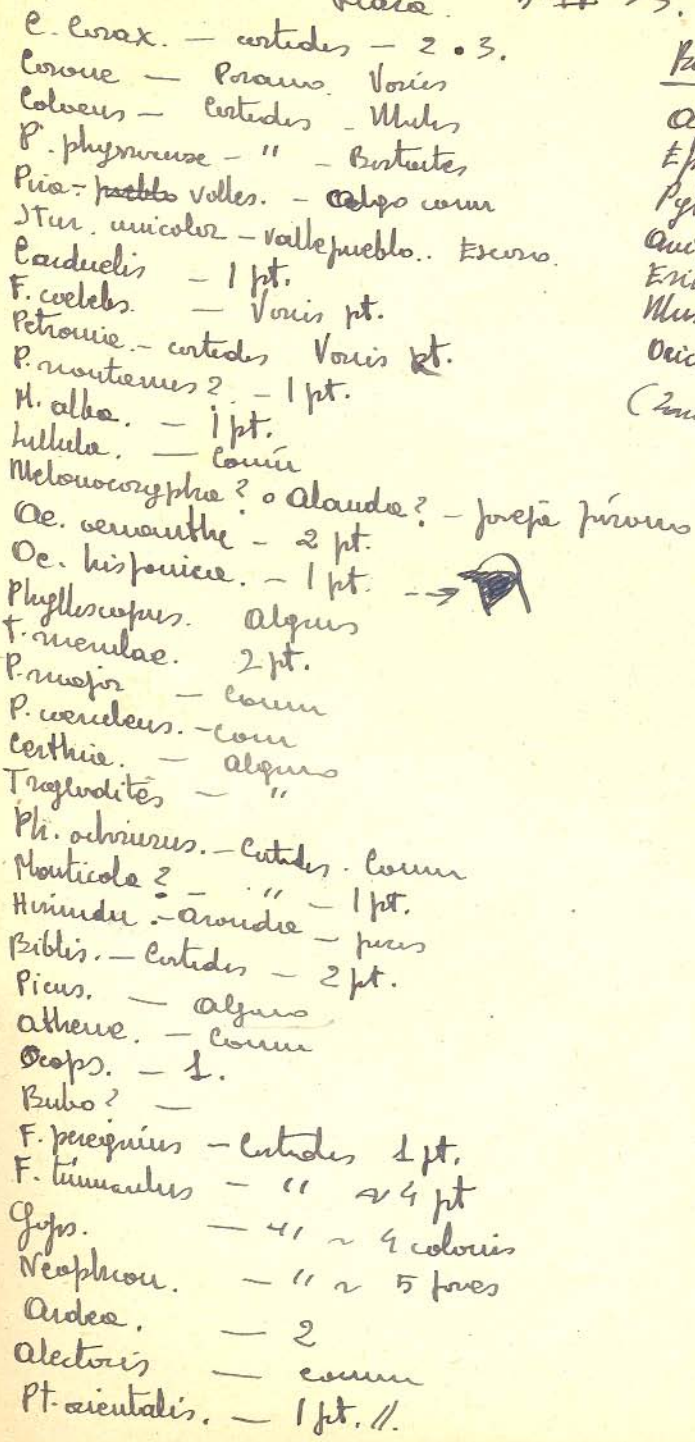 C. Corax. — cortados — 2 • 3.
Corone — Paramo. Varios
Coloeus — Cortados - Muchos
P. phyrrocorax - " - Bastantes
Pica - pueblo valles. - algo comun
Stur. unicolor - valle pueblo.. Escaso.
Carduelis — 1 pt.
F. coelebs. — Varios pt.
Petronia. - cortados Varios pt.
P. montanus? — 1 pt.
M. alba. — 1 pt.
Lullula. — Común
Melanocorypha? o Alauda? - pareja páramo
Oe. oenanthe - 2 pt.
Oe. hispanica. - 1 pt. -->
Phylloscopus. Algunos
T. merulae. 2 pt.
P. major — Comun
P. caeruleus. - Com
Certhia. — alguno
Troglodites — "
Ph. ochrurus. - Cortados. Comun
Monticola? — " — 1 pt.
Hirundu. - Aranda - pocas
Biblis. — Cortados — 2 pt.
Picus. — alguno
athene. — Comun
Scops. — 1.
Bubo? —
F. peregrinus - Cortados 1 pt.
F. tinnunculus - " ~ 4 pt
Gyps. — " ~ 4 colonias
Neophron. — " ~ 5 pares
Ardea. — 2
Alectoris — comun
Pt. orientalis. — 1 pt. //.